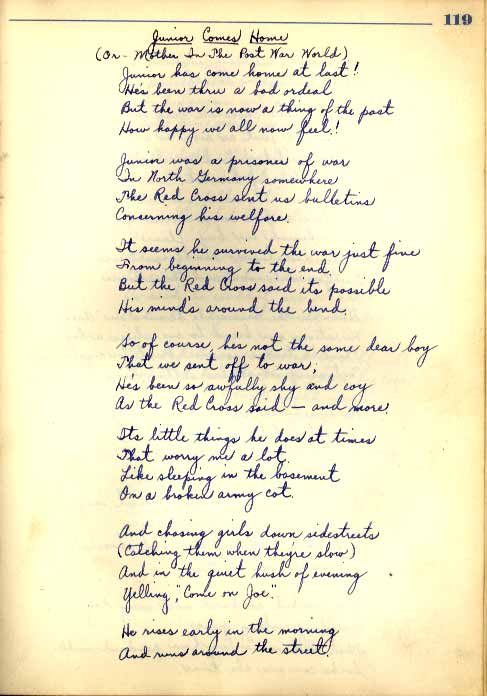 119
Junior Comes Home
(Or - Mother In The Post War World)
Junior has come home at last!
He's been thru a bad ordeal
But the war is now a thing of the past
How happy we all now feel!
Junior was a prisoner of war
In North Germany somewhere
The Red Cross sent us bulletins
Concerning his welfare.
It seems he survived the war just fine
From beginning to the end.
But the Red Cross said its possible
His mind's around the bend.
So of course hes not the same dear boy
That we sent off to war,
He's been so awfully shy and coy
As the Red Cross said — and more.
Its little things he does at times
That worry me a lot.
Like sleeping in the basement
On a broken army cot.
And chasing girls down sidestreets
(Catching them when they're slow)
And in the quiet hush of evening
Yelling, "Come on Joe".
He rises early in the morning
And runs around the street.